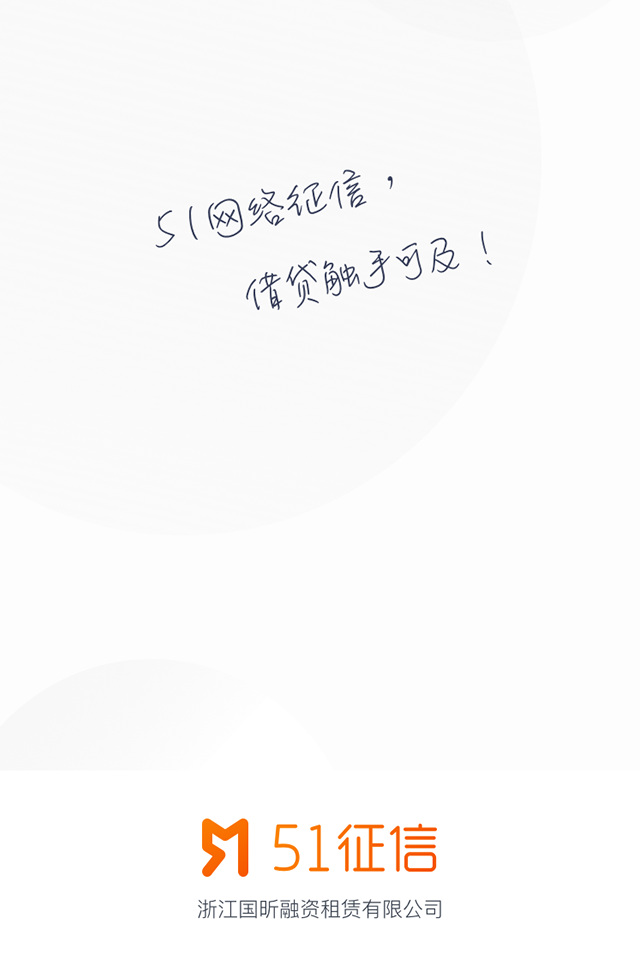 51网络征信，
借贷触手可及！
51征信
浙江国昕融资租赁有限公司